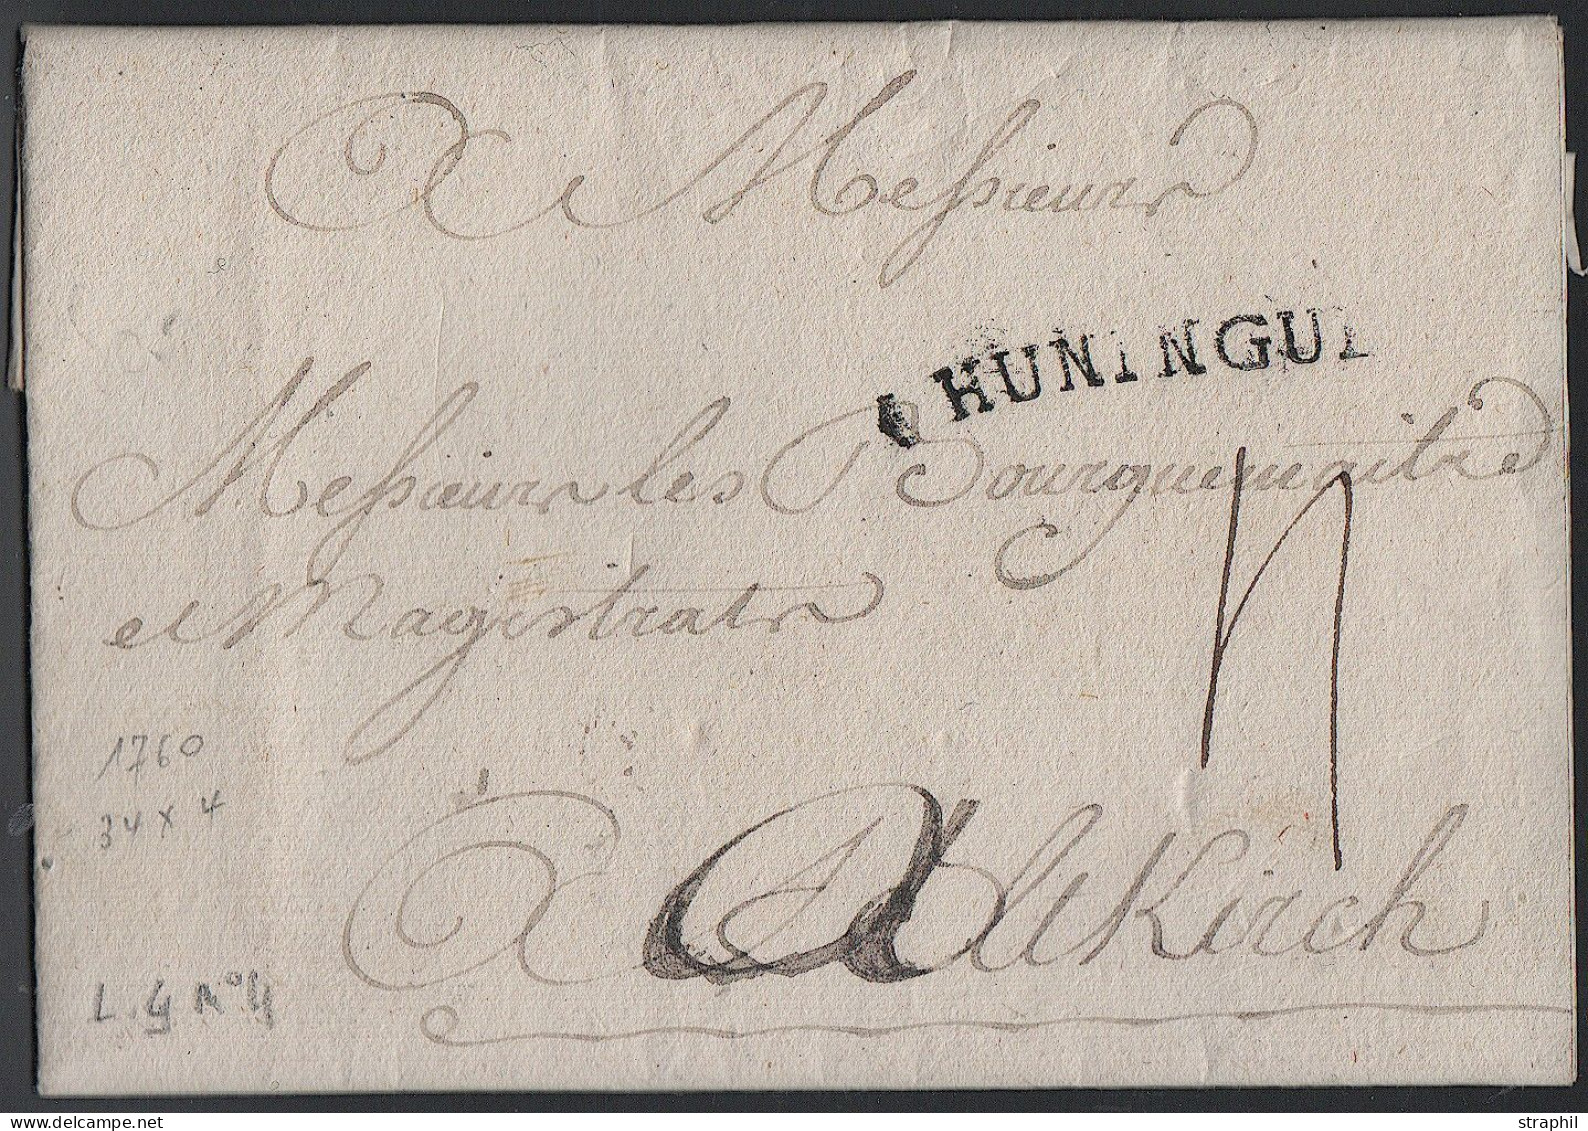 A Messieurs
HUNINGUE
Messieurs les Bourguemaitre
et Magistrats
4
1760
34 x 4
A Altkirch
L. G N° 4
straphil